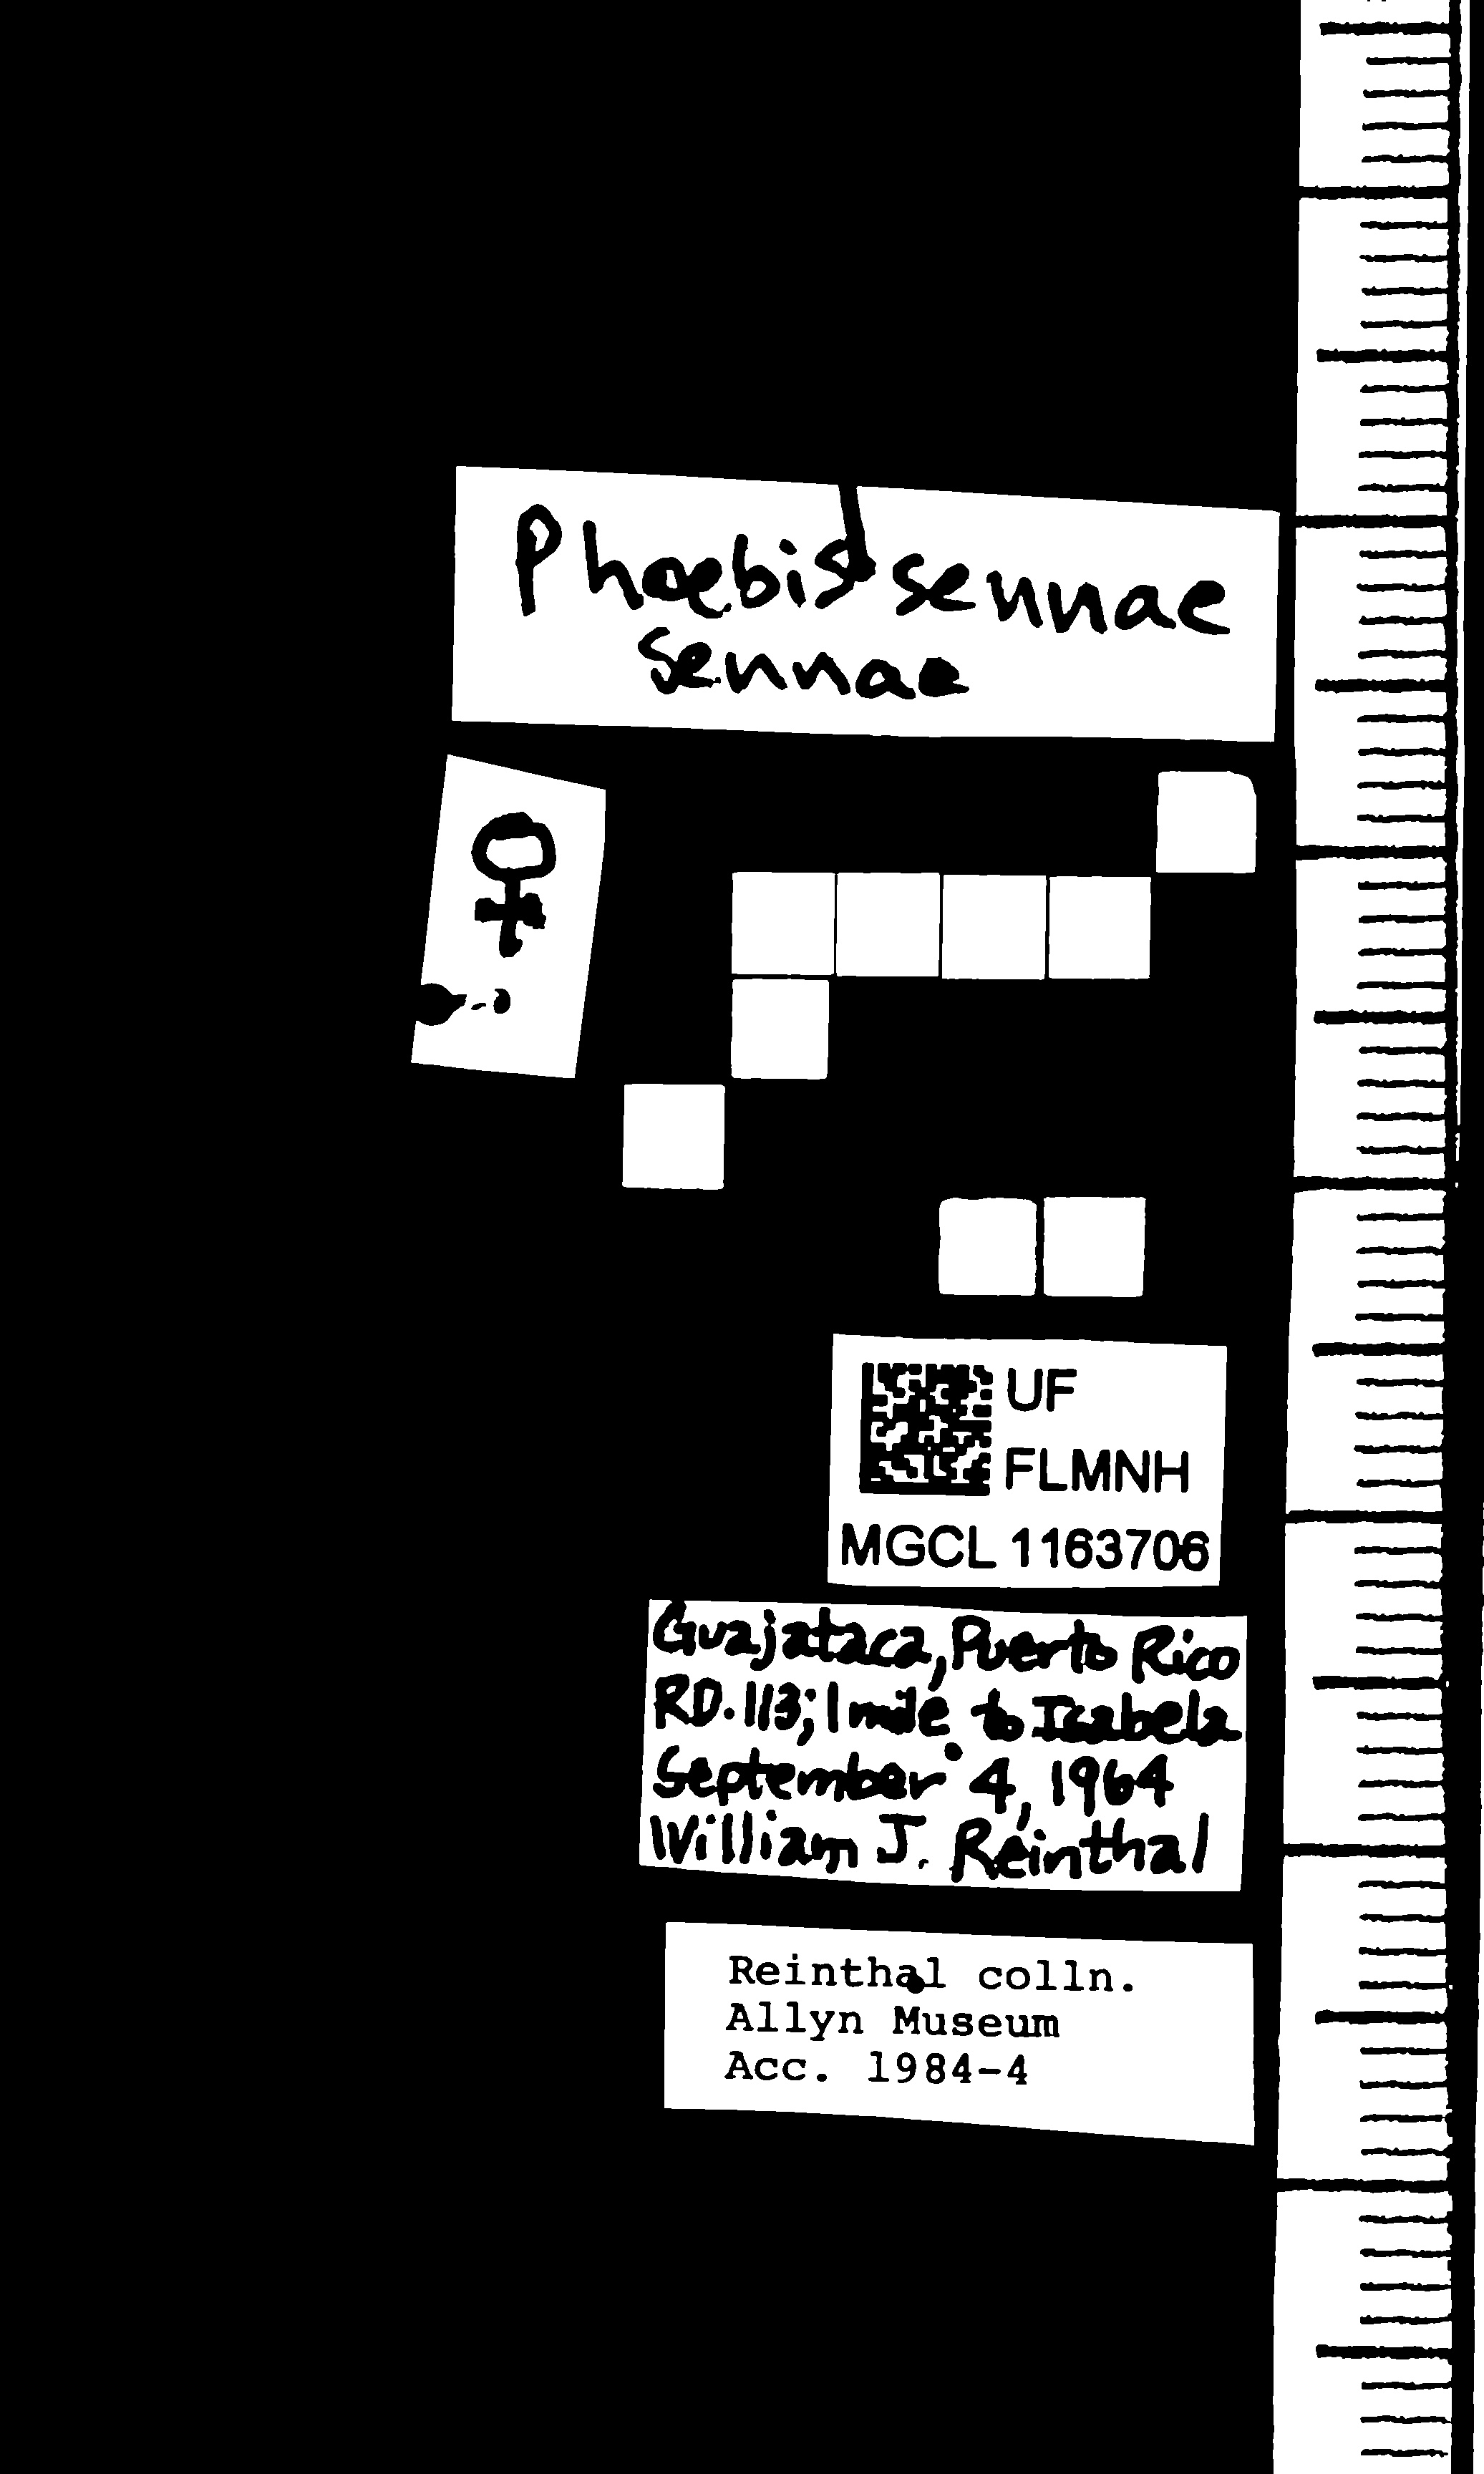 Phoebis sennae
sennae
♀
UF
FLMNH
MGCL 1163706
Guajataca, Puerto Rico
RD. 113; 1 mile to Izabela
September 4, 1964
William J. Reinthal
Reinthal colln.
Allyn Museum
Acc. 1984-4